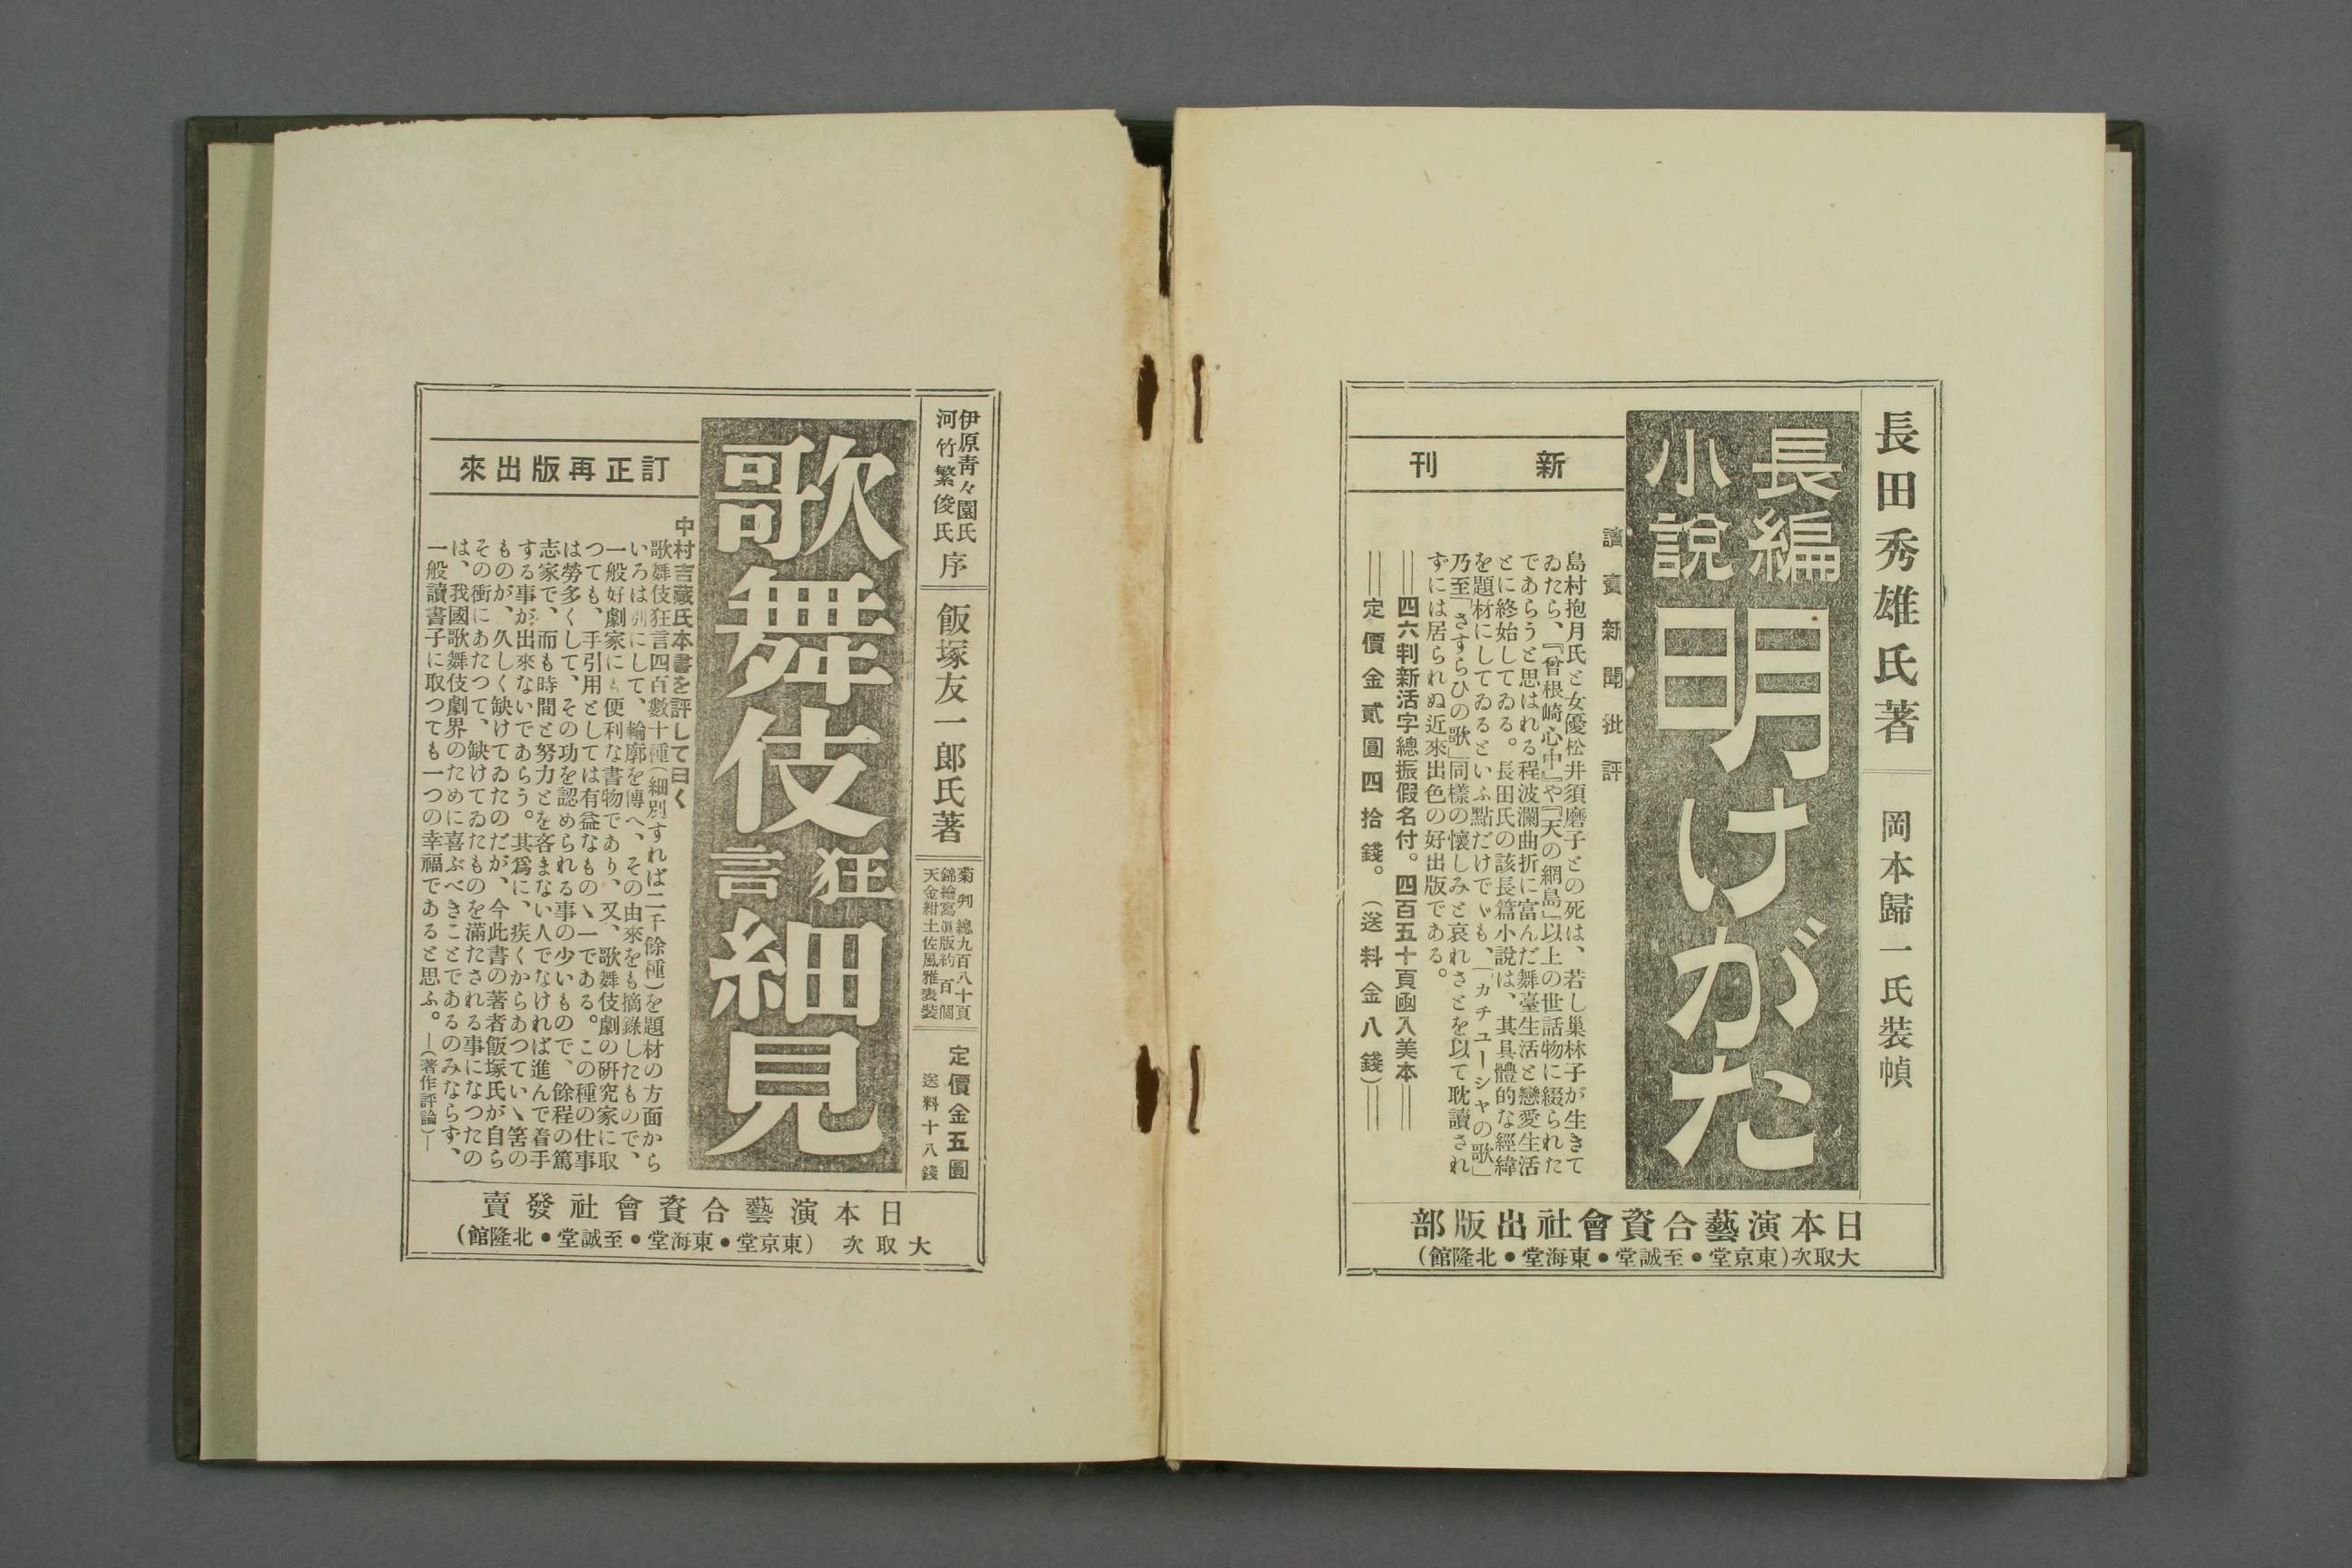 長田秀雄氏著
岡本歸一氏装幀
長編
小說
明けがた
新刊
讀賣新聞批評
島村抱月氏と女優松井須磨子との死は、若し巢林子が生きて
ゐたら、『曾根崎心中』や『天の網島』以上の世話物に綴られた
であらうと思はれる程波瀾曲折に富んだ舞臺生活と戀愛生活
とに終始してゐる。長田氏の該長篇小說は、其具體的な經緯
を題材にしてゐるといふ點だけでゞも、「カチューシャの歌」
乃至「さすらひの歌」同樣の懷しみと哀れさとを以て耽讀され
ずには居られぬ近來出色の好出版である。
══四六判新活字總振假名付。四百五十頁凾入美本══
══定價金貳圓四拾錢。(送料金八錢)══
日本演藝合資會社出版部
大取次(東京堂•至誠堂•東海堂•北隆館)
伊原靑々園氏
河竹繁俊氏
序
飯塚友一郎氏著
菊判總九百八十頁
錦繪寫眞版約百個
天金紺土佐風雅表裝
定價金五圓
送料十八錢
歌舞伎狂言細見
訂正再版出來
中村吉藏氏本書を評して曰く
歌舞伎狂言四百數十種(細別すれば二千餘種)を題材の方面から
いろは別にして、輪廓を傳へ、その由來をも摘錄したもので、
一般好劇家にも便利な書物であり、又、歌舞伎劇の硏究家に取
つても、手引用としては有益なものゝ一である。この種の仕事
は勞多くして、その功を認められる事の少いもので、餘程の篤
志家で、而も時間と努力とを吝まない人でなければ進んで着手
する事が出來ないであらう。其爲に、疾くからあつていゝ筈の
ものが、久しく缺けてゐたのだが、今此書の著者飯塚氏が自ら
その衝にあたつて、缺けてゐたものを滿たされる事になつたの
は、我國歌舞伎劇界のために喜ぶべきことであるのみならず、
一般讀書子に取つても一つの幸福であると思ふ。—(著作評論)—
日本演藝合資會社發賣
大取次(東京堂•東海堂•至誠堂•北隆館)